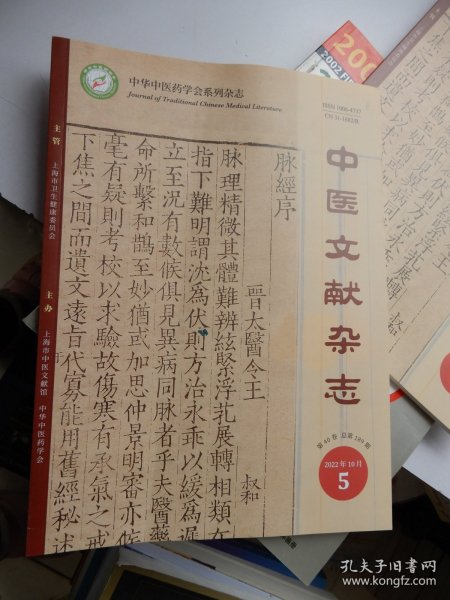 中华中医药学会系列杂志
Journal of Traditional Chinese Medical Literature
ISSN 1006-4737
CN 31-1682/R
中医文献杂志
第40卷 总第189期
2022年10月
5
脉經序
晉太醫令王 叔和
脉理精微其體難辨絃緊浮芤展轉相類
指下難明謂沈為伏則方治永乖以緩為遲
立至况有數候俱見異病同脉者乎夫醫藥
命所繫和鵲至妙猶或加思仲景明審亦候
毫有疑則考校以求驗故傷寒有承氣之戒
下焦之間而遺文遠旨代寡能用舊經秘述
主管 上海市卫生健康委员会
主办 上海市中医文献馆 中华中医药学会
200
2002 FI
孔夫子旧书网
www.kongfz.com